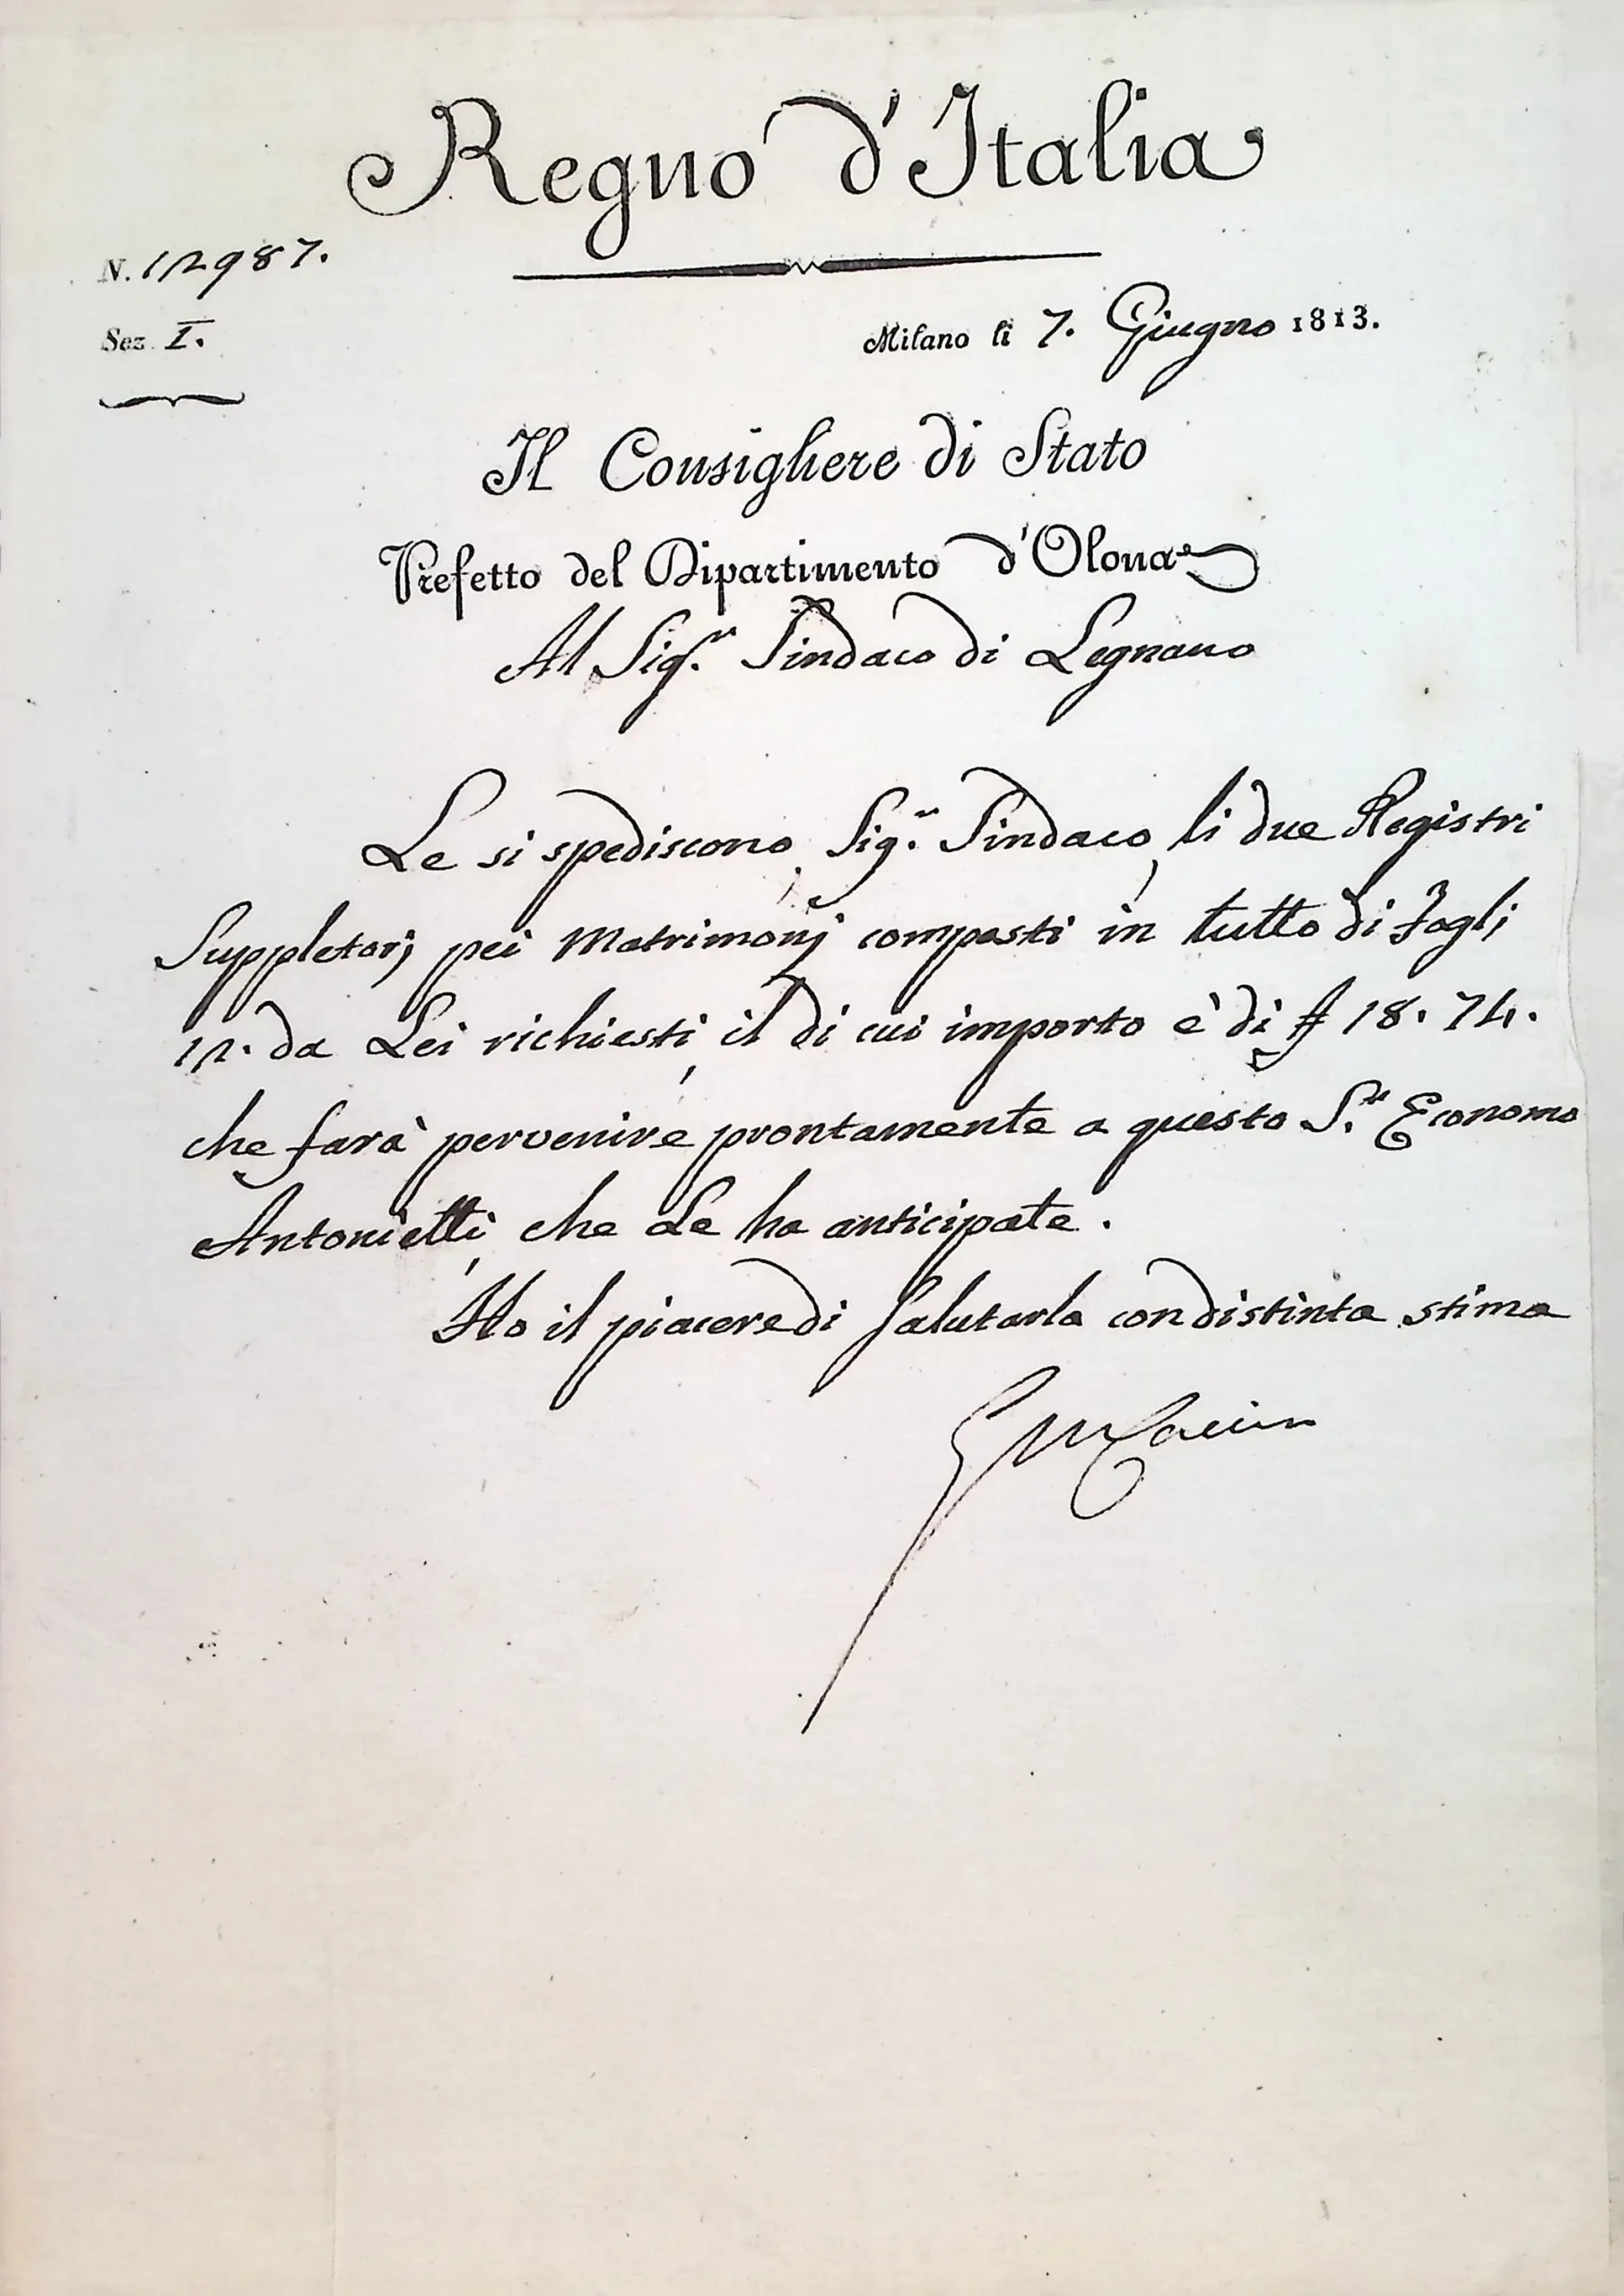 Regno d'Italia
N. 12987.
Sez. I.
Milano li 7. Giugno 1813.
Il Consigliere di Stato
Prefetto del Dipartimento d'Olona
Al Sigr. Sindaco di Legnano
Le si spediscono, Sigr. Sindaco, li due Registri
Suppletorj pei Matrimonj composti in tutto di Fogli
12. da Lei richiesti, il di cui importo è di £ 18. 74.
che farà pervenire prontamente a questo Sr. Economo
Antonietti, che Le ha anticipate.
Ho il piacere di salutarla con distinta stima